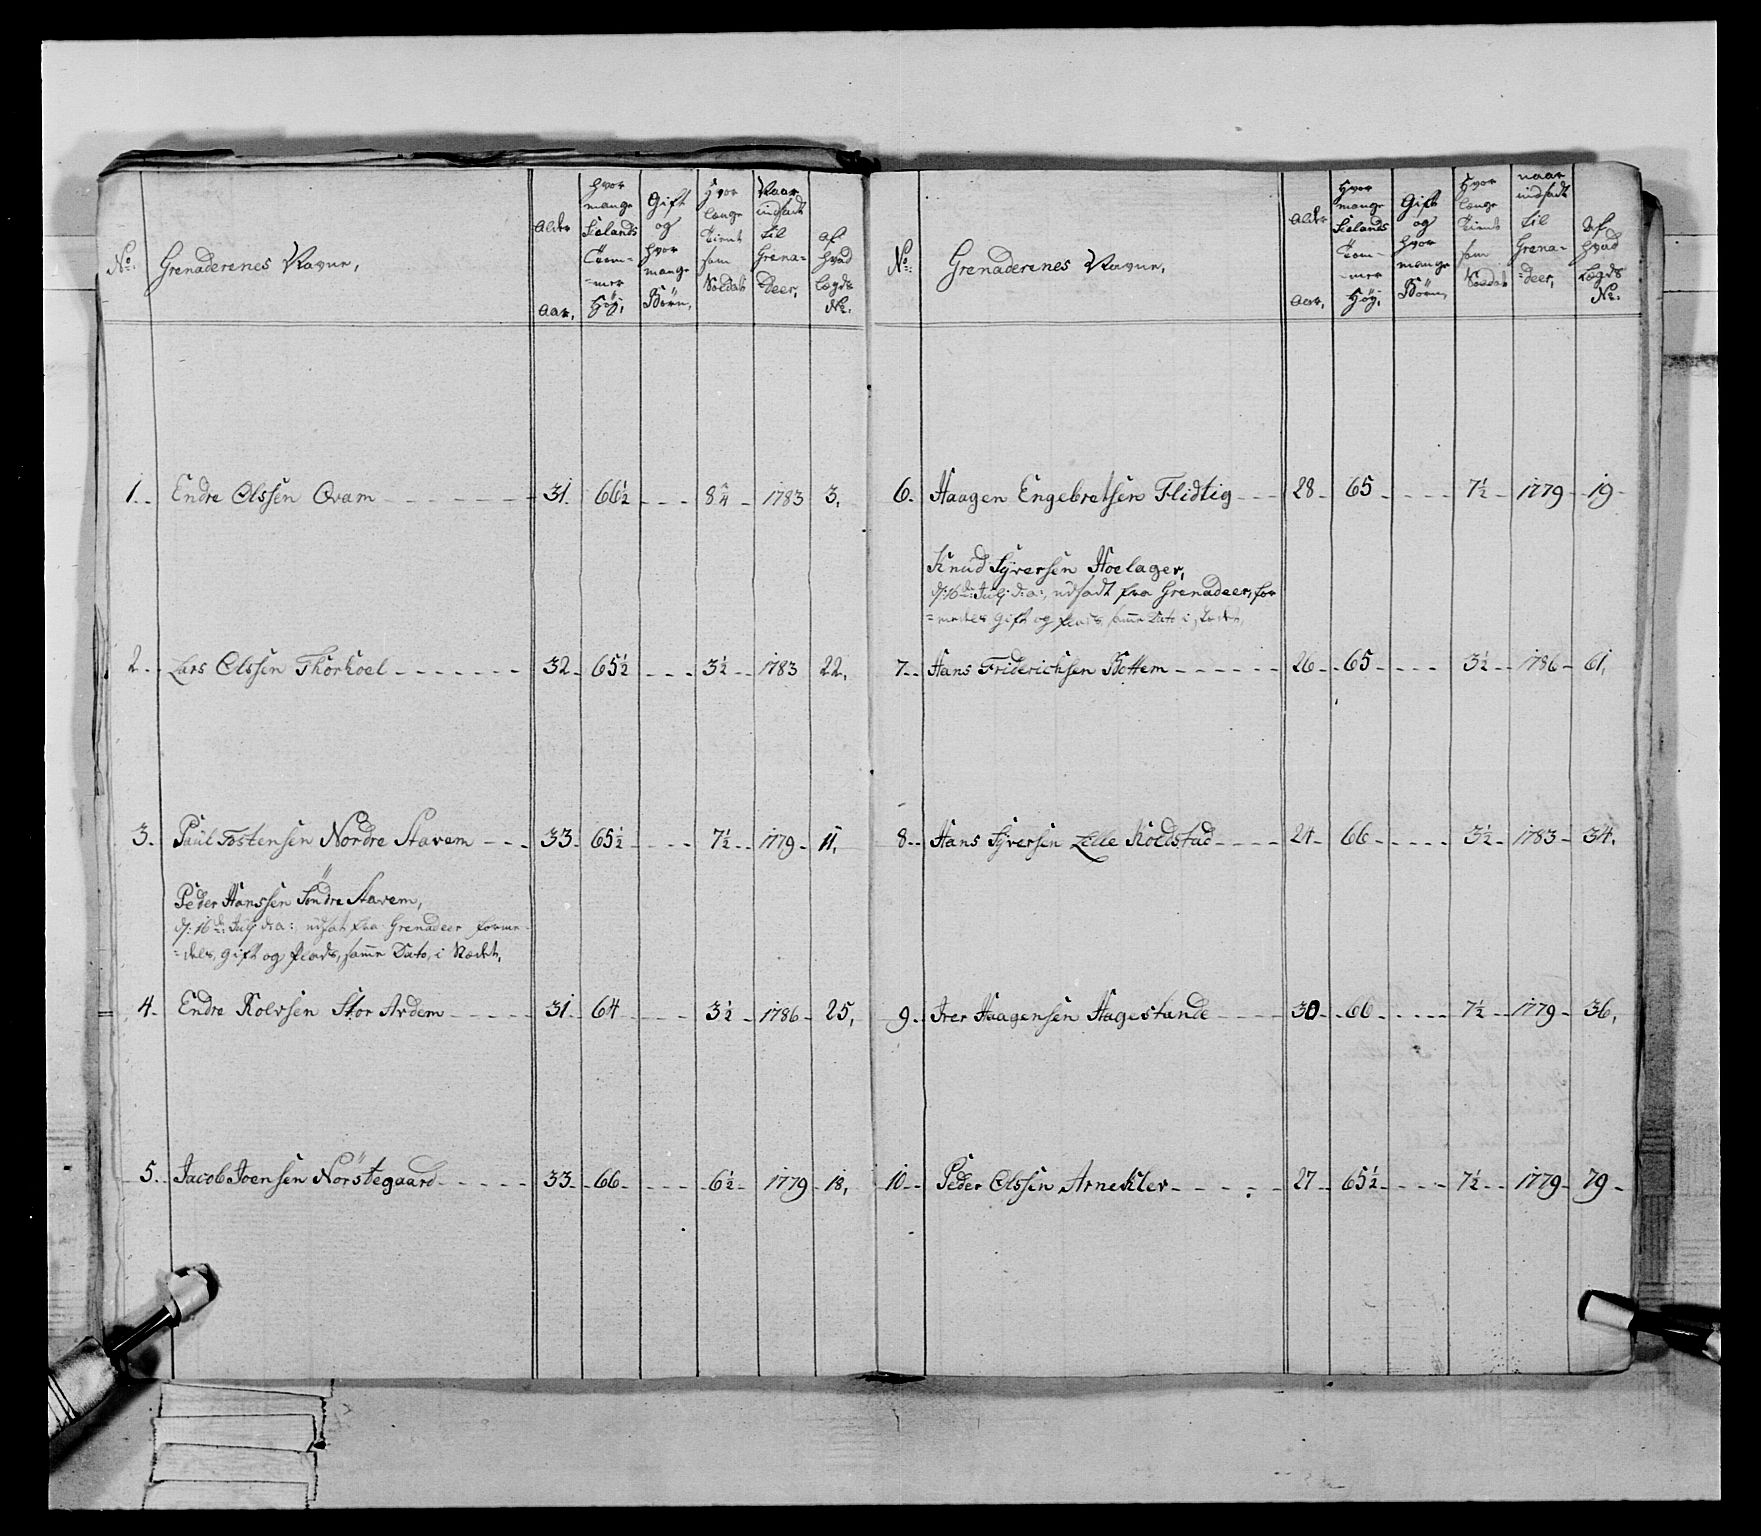 No: Grenaderenes Navne, Alder Aar, hvor mange Sielands Tom- -mer Höy, Gift og hvor mange Börn, Hvor længe tient som Soldat Naar indsadt til Grena- -deer, af hvad Lægds No:
1. Endre Olssen Qvam 31. 66½ 8¾ 1783 3.
2. Lars Olssen Thorhoel 32 65½ 3½ 1783 22,
3. Paul Tostensen Nordre Stavem 33 65½ 7½ 1779 11,
Peder Hanssen Söndre Stavem,
d: 16de Julj d:a:, udsat fra Grenadeer forme-
-deles, gift og Plads, samme Dato, i
4. Endre Rolvsen Stor Ardem 31 64 3½ 1786 25,
5. Jacob Joensen Norstegaard 33 66 6½ 1779 18,
No: Grenaderenes Navne, Alder Aar, Hvor mange Sielands Tom- -mer Höy, Gift og hvor mange Börn, Hvor længe tient som Soldat naar indsadt til Grena- -deer, Af hvad Lægds No:
6. Haagen Engebretsen Flidtig 28 65 7½ 1779 19
Knud Syversen Hoelager,
d: 16de Julj d:a:, udsadt fra Grenadeer, for
-medes gift og Plads, samme Dato i
7. Hans Friderichsen Bottem 26 65 3½ 1786 61,
8. Hans Syversen Zelle Koldstad 24 66 3½ 1783 34.
9. Iver Haagensen Hagestande 30 66 7½ 1779 36,
10 Peder Olssen Arneklev 27 65½ 7½ 1779 79